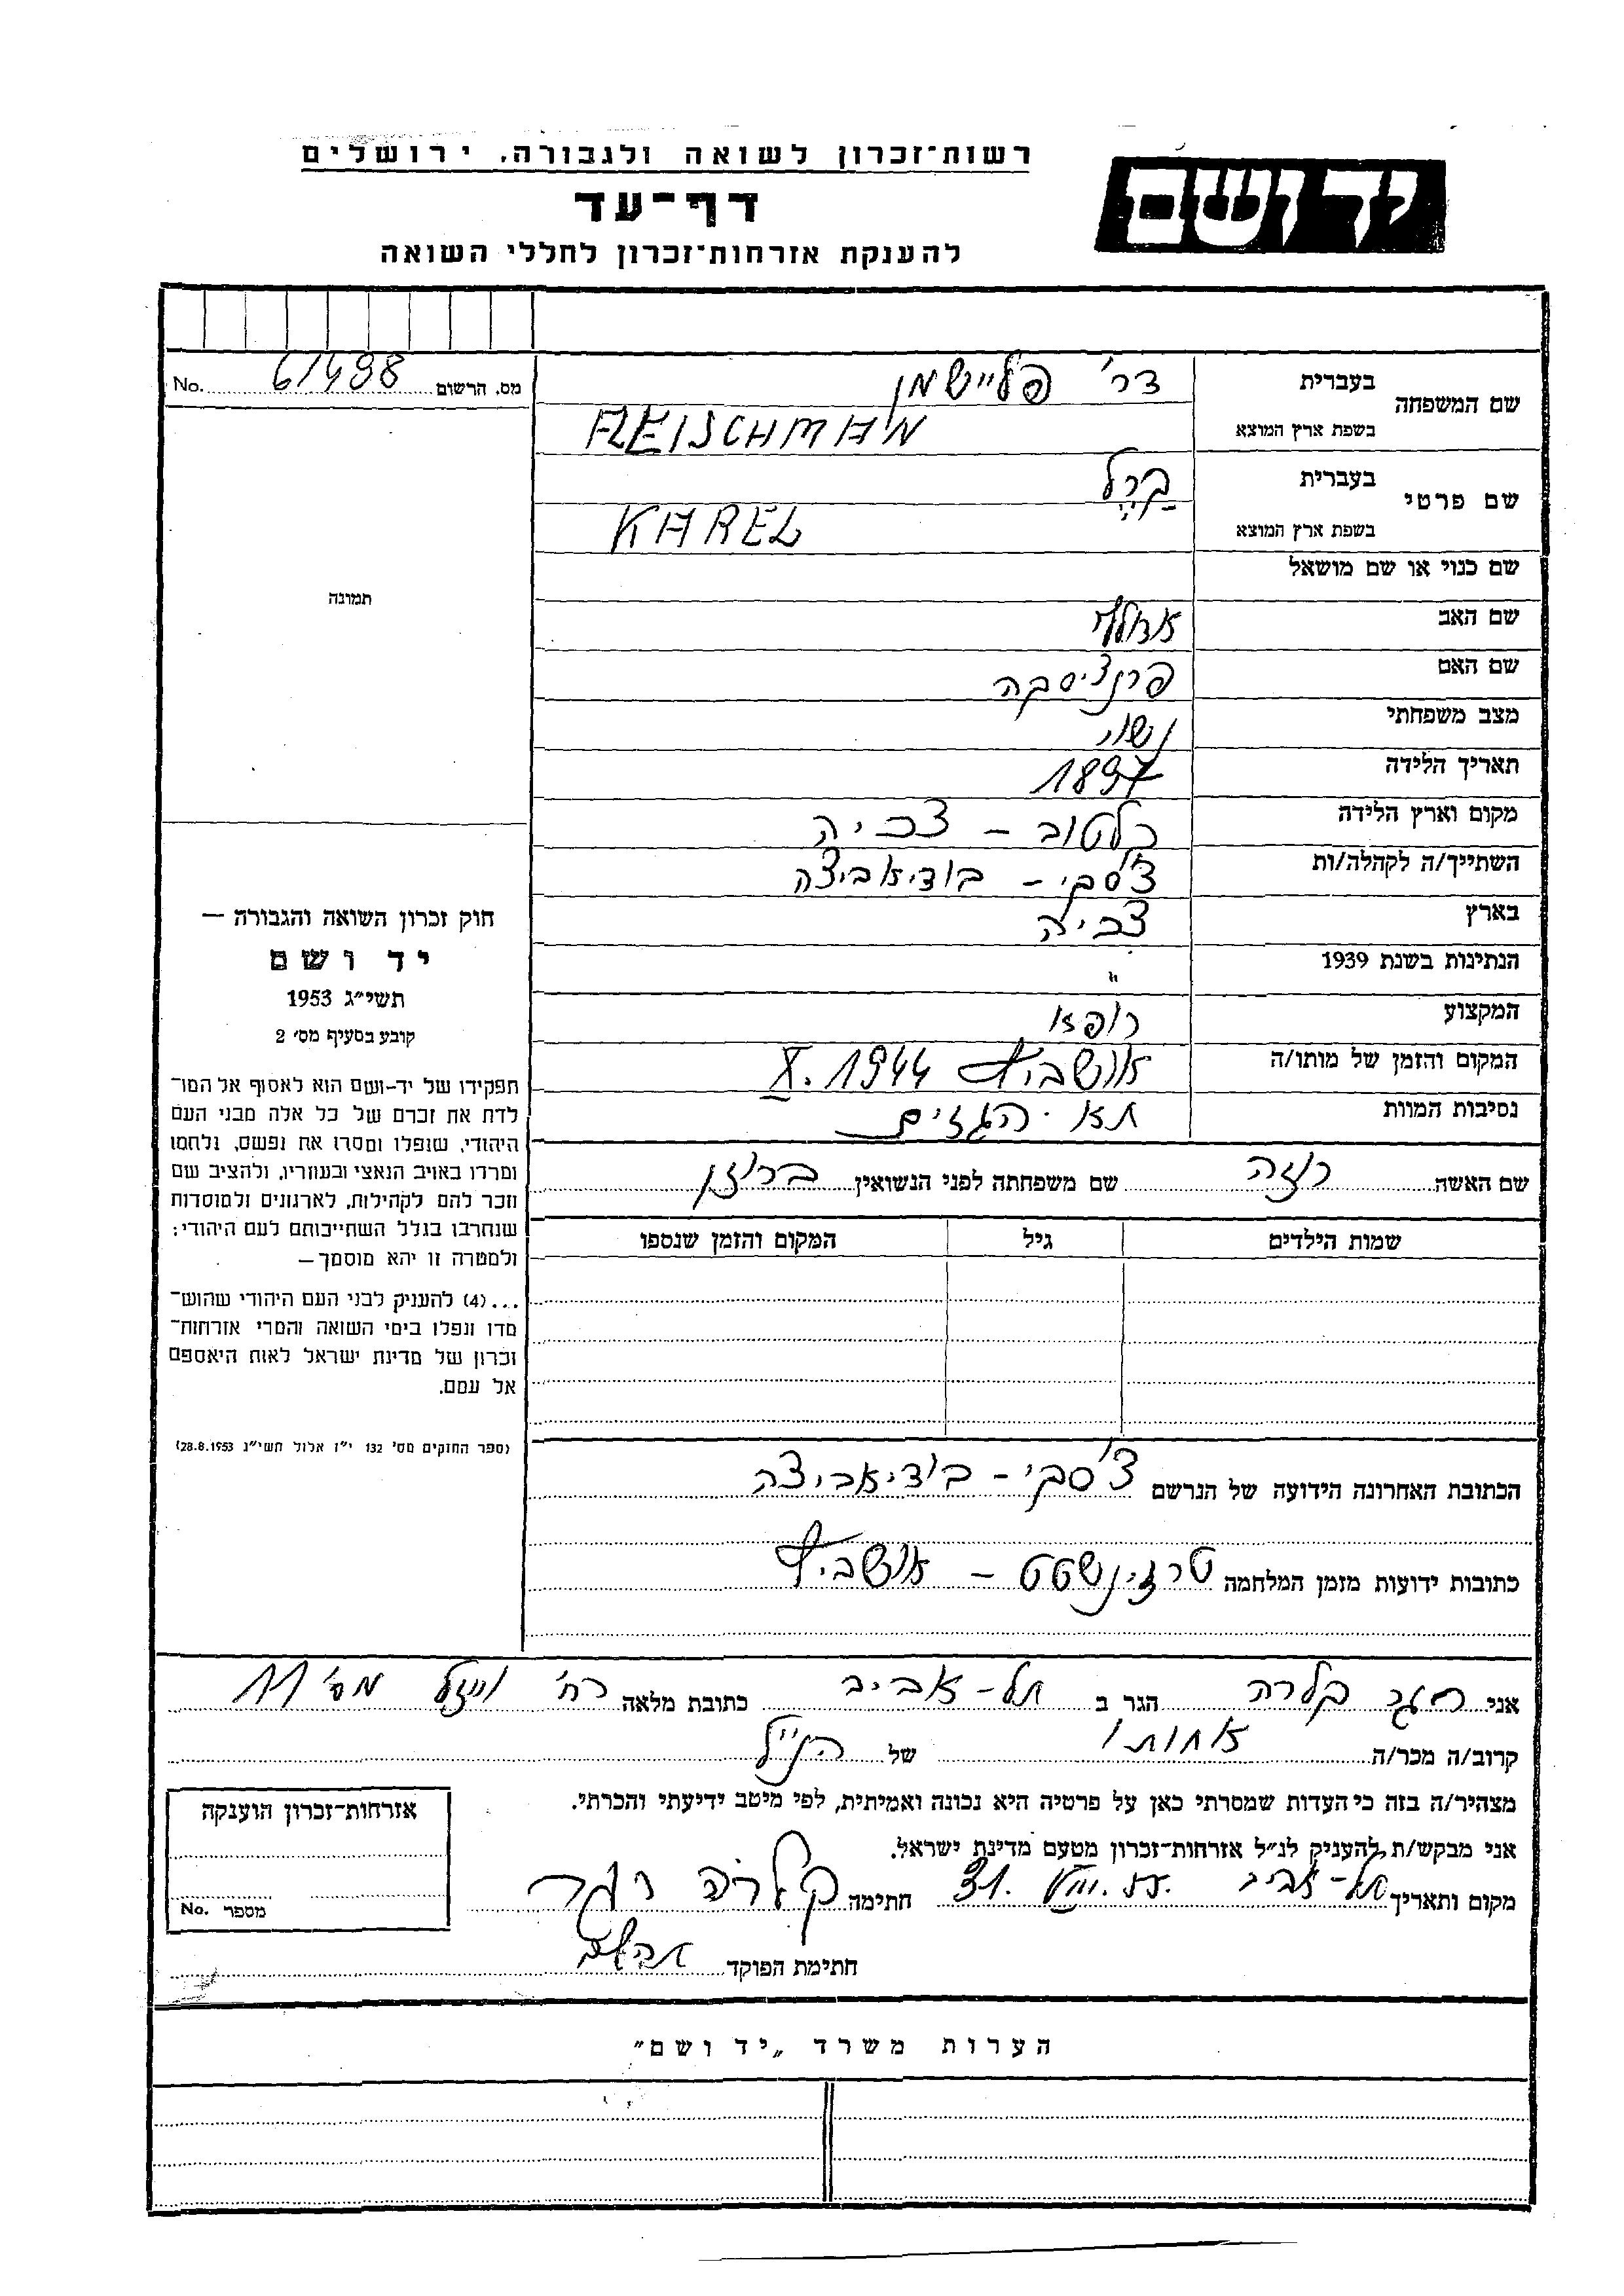 רשות־זכרון לשואה ולגבורה, ירושלים
יד ושם
דף־עד
להענקת אזרחות־זכרון לחללי השואה
מס. הרשום 61498 No.
שם המשפחה
בעברית דר' פליישמן
בשפת ארץ המוצא FLEISCHMAN
שם פרטי
בעברית קרל
בשפת ארץ המוצא KAREL
שם כנוי או שם מושאל
שם האב אדולף
שם האם פרנציסקה
מצב משפחתי נשוי
תאריך הלידה 1897
מקום וארץ הלידה קלטוב – צכיה
השתייך/ה לקהלה/ות צ'סקי – בודיאביצה
בארץ צכיה
הנתינות בשנת 1939 "
המקצוע רופא
המקום והזמן של מותו/ה אושביץ X. 1944
נסיבות המוות תא הגזים
שם האשה רוזה שם משפחתה לפני הנשואין
שמות הילדים גיל המקום והזמן שנספו
הכתובת האחרונה הידועה של הנרשם צ'סקי – בודיאביצה
כתובות ידועות מזמן המלחמה טרזינשטט – אושביץ
תמונה
חוק זכרון השואה והגבורה —
יד ושם
תשי״ג 1953
קובע בסעיף מס׳ 2
תפקידו של יד-ושם הוא לאסוף אל המו־
לדת את זכרם של כל אלה מבני העם
היהודי, שנפלו ומסרו את נפשם, נלחמו
ומרדו באויב הנאצי ובעוזריו, ולהציב שם
וזכר להם לקהילות, לארגונים ולמוסדות
שנחרבו בגלל השתייכותם לעם היהודי;
ולמטרה זו יהא מוסמך—
...(4) להעניק לבני העם היהודי שהוש־
מדו ונפלו בימי השואה והמרי אזרחות־
זכרון של מדינת ישראל לאות היאספם
אל עמם.
(ספר החוקים מס׳ 132 י״ז אלול תשי״ג 28.8.1953)
אני קלרה הגר ב תל-אביב כתובת מלאה רח' וייזל מס' 11
קרוב/ה מכר/ה אחותו של הנ״ל
מצהיר/ה בזה כי העדות שמסרתי כאן על פרטיה היא נכונה ואמיתית, לפי מיטב ידיעתי והכרתי.
אני מבקש/ת להעניק לנ״ל אזרחות־זכרון מטעם מדינת ישראל.
מקום ותאריך תל-אביב 31. VIII. 55. חתימה קלרה
חתימת הפוקד
אזרחות־זכרון הוענקה
מספר No.
הערות משרד „יד ושם״